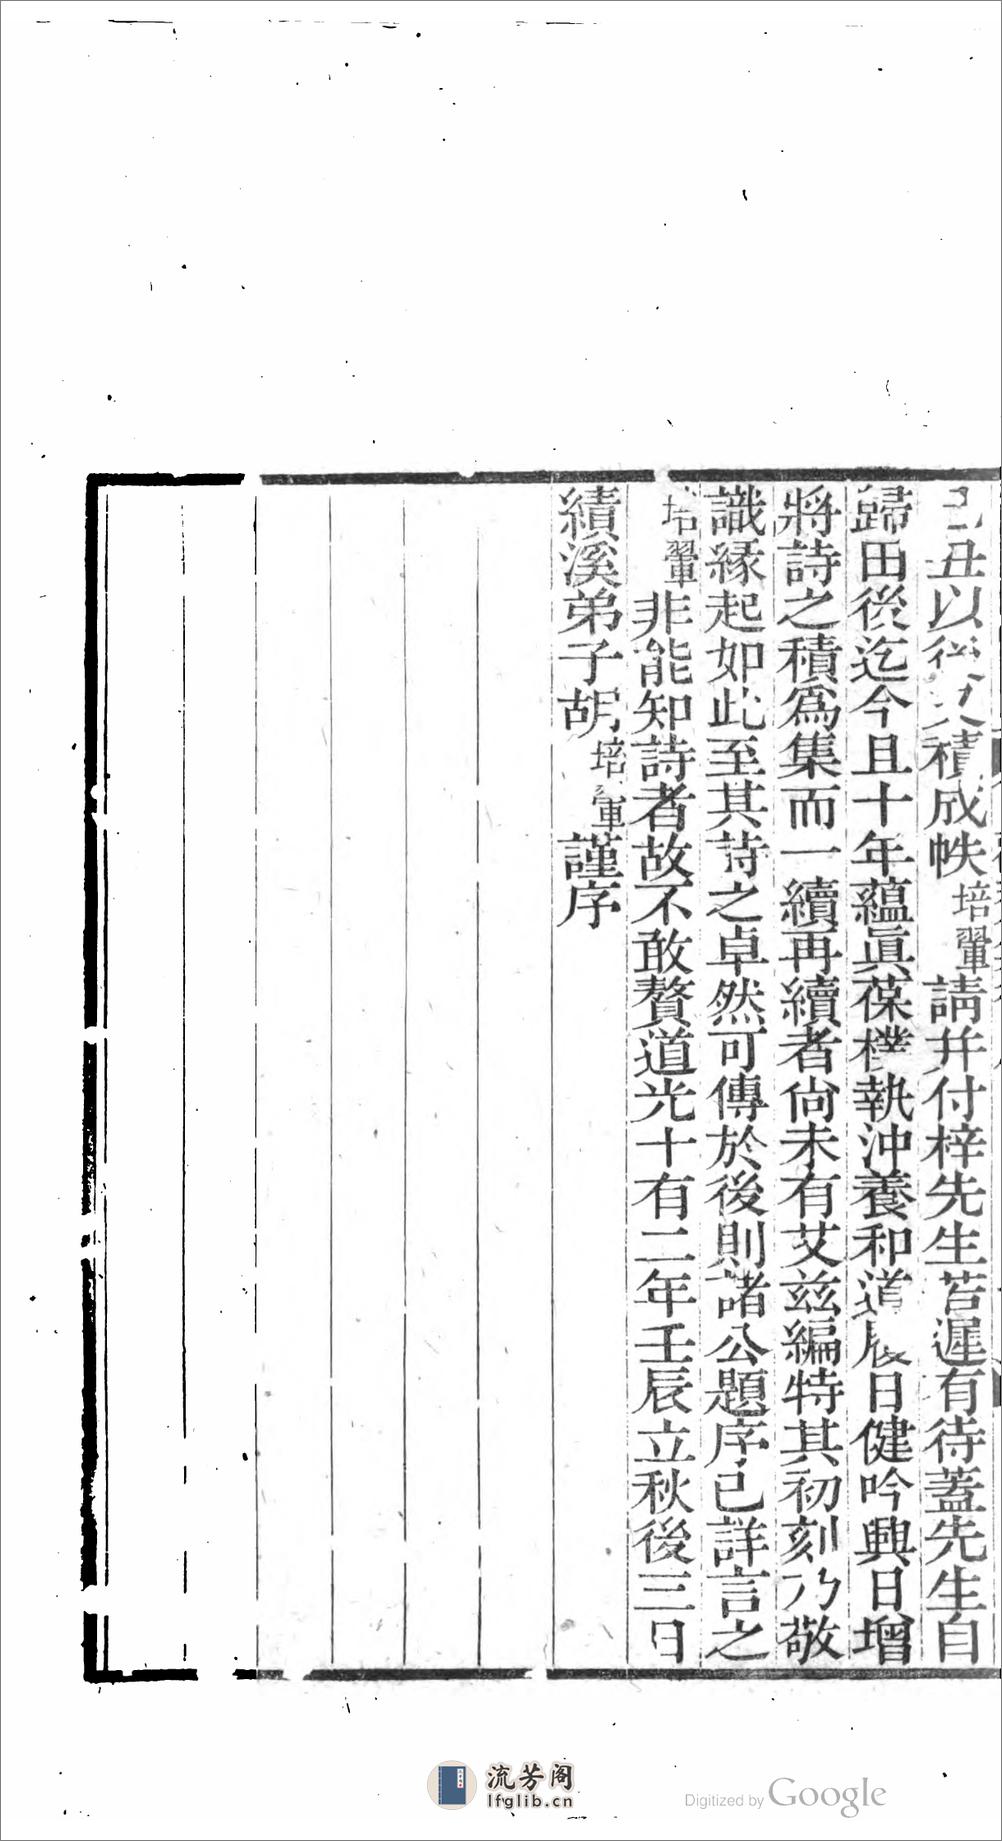 丑以後又積成帙培翬請并付梓先生苔遲有待蓋先生自
歸田後迄今且十年蘊眞葆樸執沖養和道履日健吟興日增
將詩之積爲集而一續再續者尙未有艾兹編特其初刻乃敬
識緣起如此至其詩之卓然可傳於後則諸公題序已詳言之
培翬非能知詩者故不敢贅道光十有二年壬辰立秋後三日
績溪弟子胡培翬謹序
流芳阁
lfglib.cn
Digitized by Google